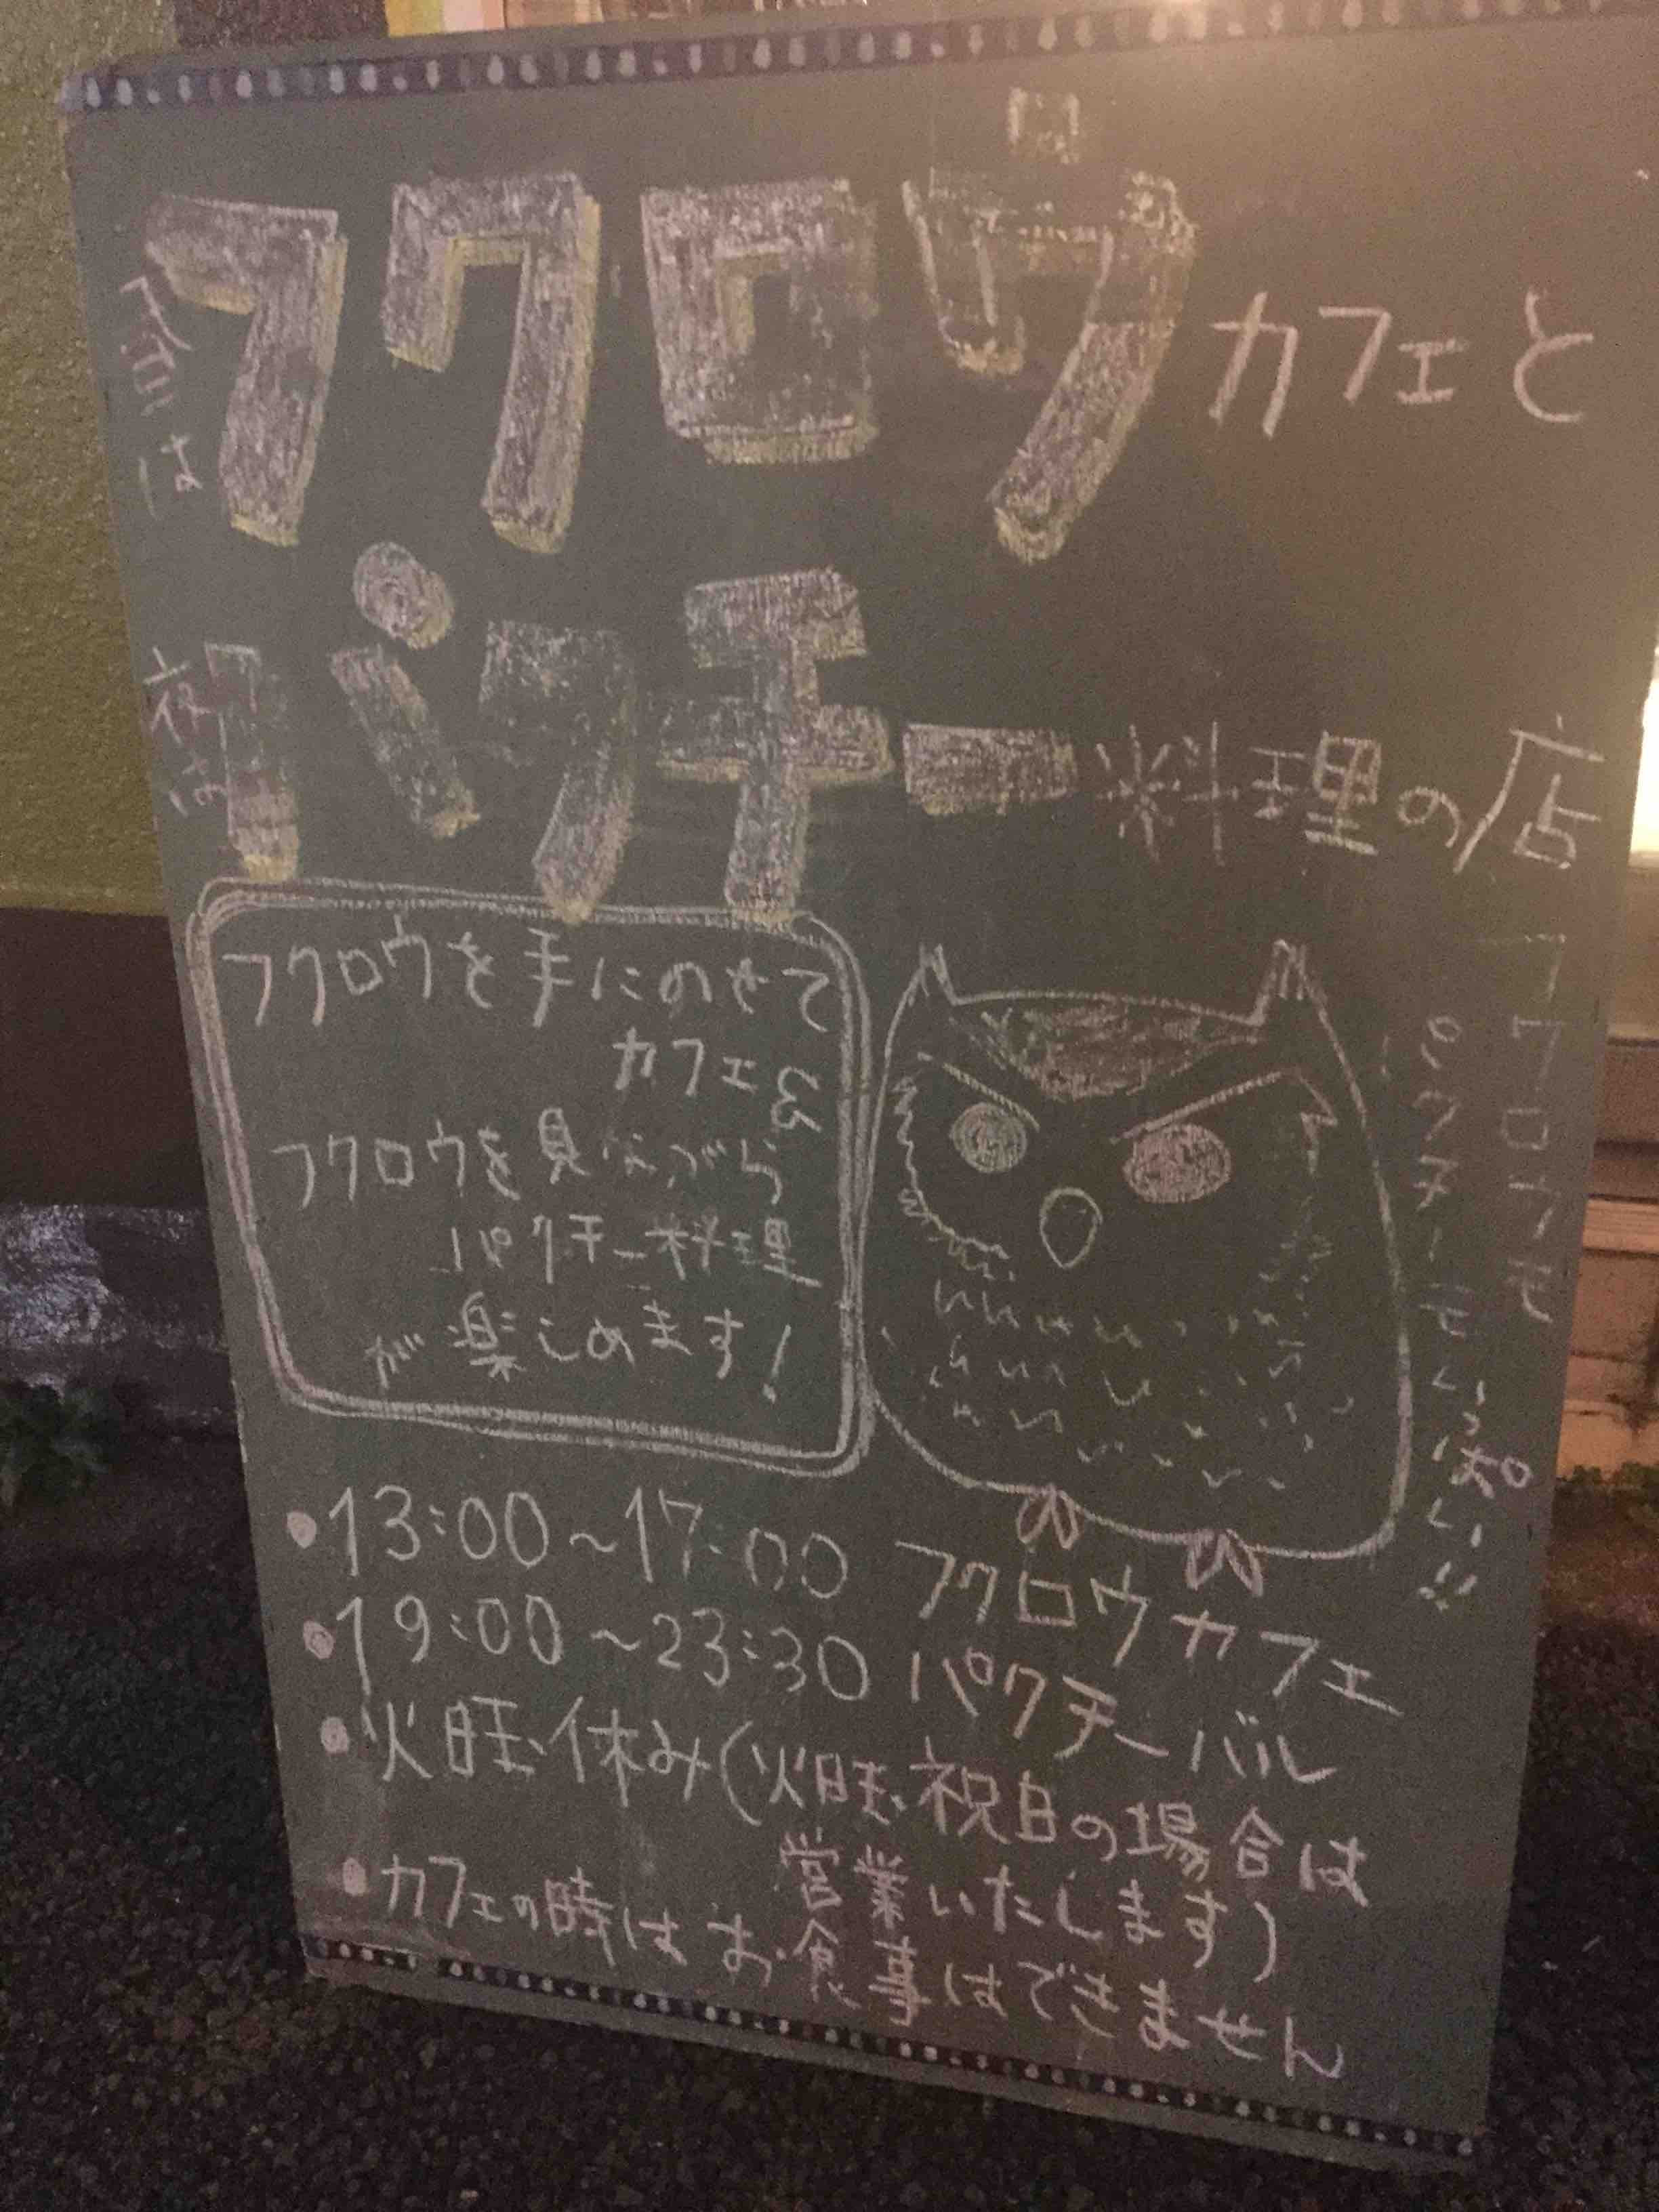 昼は
フクロウカフェと
夜は
パクチー料理の店
フクロウを手にのせて
カフェ
フクロウを見ながら
パクチー料理
が楽しめます!
フクロウも
パクチーも
いっぱい!!
•13:00~17:00 フクロウカフェ
•19:00~23:30 パクチーバル
•火曜休み(火曜祝日の場合は
営業いたします)
•カフェの時はお食事はできません